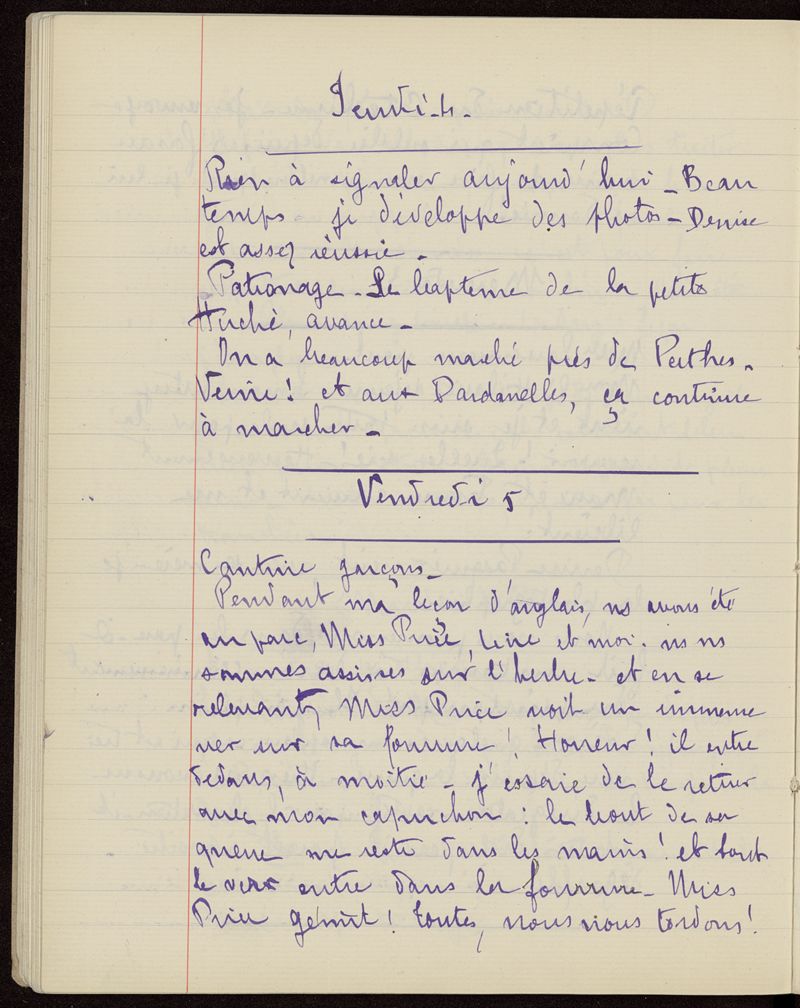 Jeudi. 4.
Rien à signaler aujourd'hui _ Beau
temps je développe des photos _ Denise
est assez réussie .
Patronage _ Le baptême de la petite
Huché, avance _
On a beaucoup marché près de Perthes _
Veine ! et aux Dardanelles, ça continue
à marcher _
Vendredi 5
Cantine garçons _
Pendant ma leçon d'anglais, ns avons été
au parc, Miss Price, et moi . ns ns
sommes assises sur l'herbe _ et en se
relevant, Miss Price voit un immense
ver sur sa fourrure ! Horreur ! il entre
dedans, à moitié _ j'essaie de le retirer
avec mon capuchon : le bout de sa
queue me reste dans les mains ! et tout
le ver entre dans la fourrure _ Miss
Price gémit ! toutes, nous nous tordons !